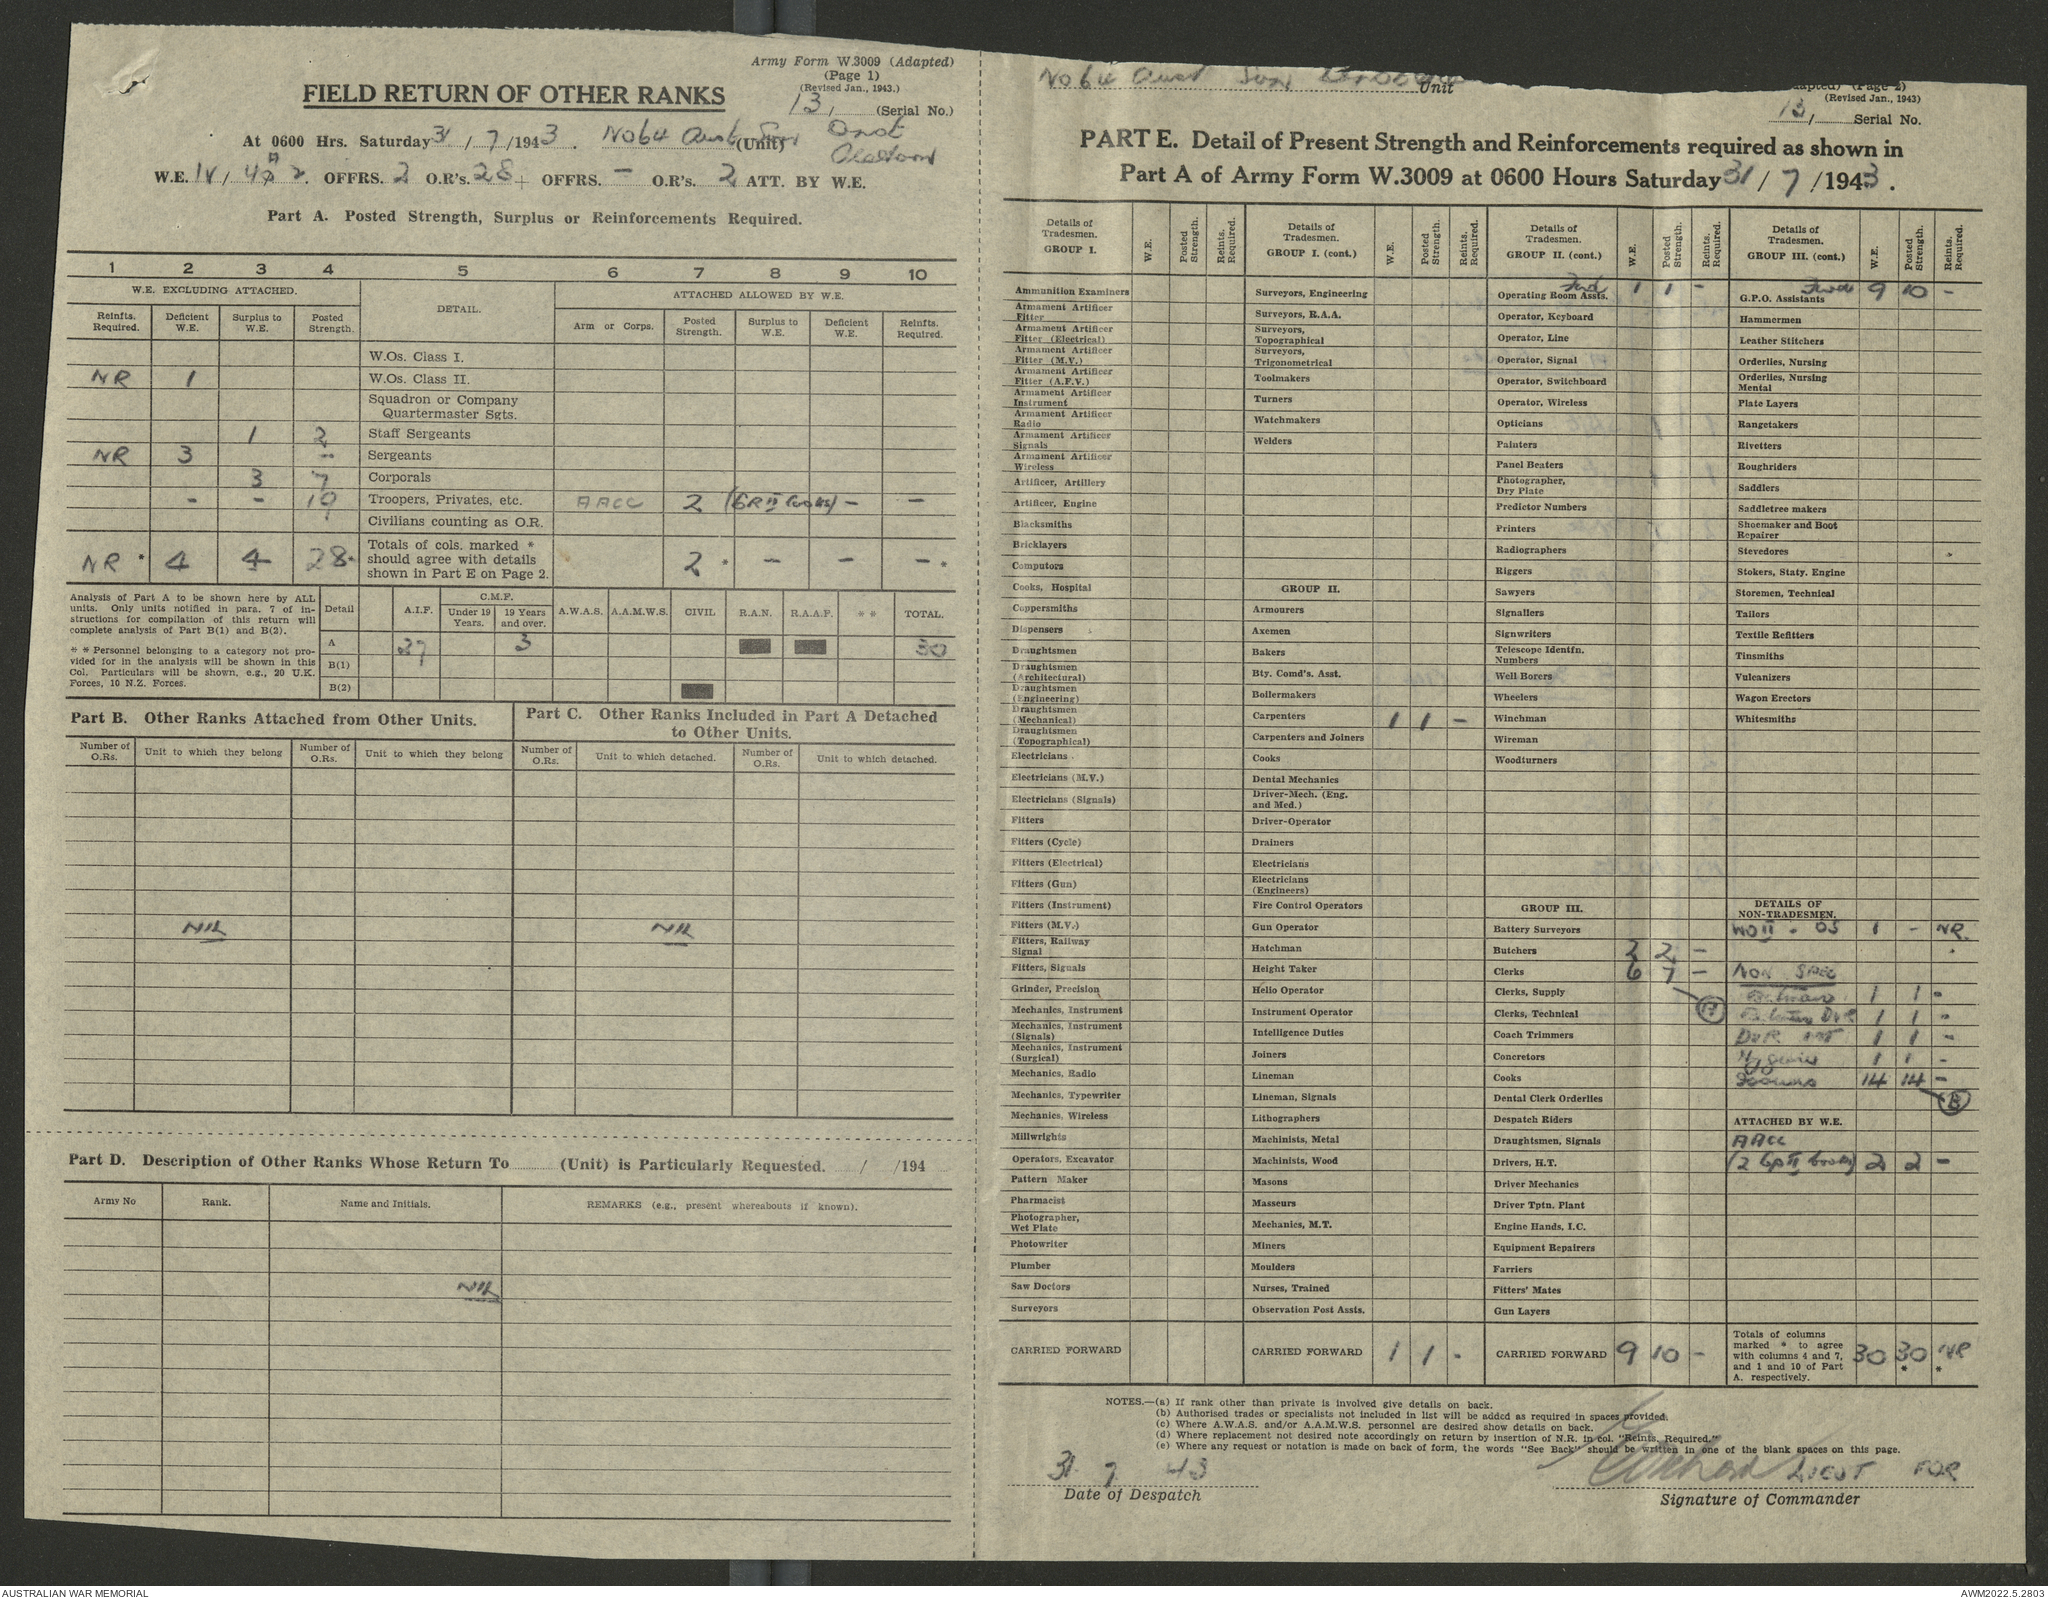 Army Form W.3009 (Adapted)
(Page 1)
(Revised Jan., 1943.)
FIELD RETURN OF OTHER RANKS
13 / (Serial No.)
At 0600 Hrs. Saturday 31 / 7 /1943. No 64 Aust (Unit)
W.E. IV / 4 2. OFFRS. 2 O.R's. 28 + OFFRS. - O.R's. 2 ATT. BY W.E.
Part A. Posted Strength, Surplus or Reinforcements Required.
1 2 3 4 5 6 7 8 9 10
W.E. EXCLUDING ATTACHED. DETAIL. ATTACHED ALLOWED BY W.E.
Reinfts. Required. Deficient W.E. Surplus to W.E. Posted Strength. Arm or Corps. Posted Strength. Surplus to W.E. Deficient W.E. Reinfts. Required.
W.Os. Class I.
NR 1 W.Os. Class II.
Squadron or Company
Quartermaster Sgts.
1 2 Staff Sergeants
NR 3 - Sergeants
3 7 Corporals
- - 19 Troopers, Privates, etc. AACC 2 (GR II Cooks) - -
Civilians counting as O.R.
NR * 4 4 28 * Totals of cols. marked *
should agree with details
shown in Part E on Page 2. 2 * - - - *
Analysis of Part A to be shown here by ALL
units. Only units notified in para. 7 of in-
structions for compilation of this return will
complete analysis of Part B(1) and B(2).
* * Personnel belonging to a category not pro-
vided for in the analysis will be shown in this
Col. Particulars will be shown, e.g., 20 U.K.
Forces, 10 N.Z. Forces.
Detail A.I.F. C.M.F. Under 19 Years. 19 Years and over. A.W.A.S. A.A.M.W.S. CIVIL R.A.N. R.A.A.F. * * TOTAL.
A 27 3 30
B(1)
B(2)
Part B. Other Ranks Attached from Other Units.
Part C. Other Ranks Included in Part A Detached
to Other Units.
Number of O.Rs. Unit to which they belong Number of O.Rs. Unit to which they belong Number of O.Rs. Unit to which detached. Number of O.Rs. Unit to which detached.
NIL NIL
Part D. Description of Other Ranks Whose Return To (Unit) is Particularly Requested. / /194
Army No Rank. Name and Initials. REMARKS (e.g., present whereabouts if known).
NIL
No 64 Aust Unit
(Page 2)
(Revised Jan., 1943)
13 / Serial No.
PART E. Detail of Present Strength and Reinforcements required as shown in
Part A of Army Form W.3009 at 0600 Hours Saturday 31 / 7 /1943.
Details of Tradesmen. GROUP I. W.E. Posted Strength. Reints. Required.
Ammunition Examiners
Armament Artificer Fitter
Armament Artificer Fitter (Electrical)
Armament Artificer Fitter (M.V.)
Armament Artificer Fitter (A.F.V.)
Armament Artificer Instrument
Armament Artificer Radio
Armament Artificer Signals
Armament Artificer Wireless
Artificer, Artillery
Artificer, Engine
Blacksmiths
Bricklayers
Computors
Cooks, Hospital
Coppersmiths
Dispensers
Draughtsmen
Draughtsmen (Architectural)
Draughtsmen (Engineering)
Draughtsmen (Mechanical)
Draughtsmen (Topographical)
Electricians
Electricians (M.V.)
Electricians (Signals)
Fitters
Fitters (Cycle)
Fitters (Electrical)
Fitters (Gun)
Fitters (Instrument)
Fitters (M.V.)
Fitters, Railway Signal
Fitters, Signals
Grinder, Precision
Mechanics, Instrument
Mechanics, Instrument (Signals)
Mechanics, Instrument (Surgical)
Mechanics, Radio
Mechanics, Typewriter
Mechanics, Wireless
Millwrights
Operators, Excavator
Pattern Maker
Pharmacist
Photographer, Wet Plate
Photowriter
Plumber
Saw Doctors
Surveyors
CARRIED FORWARD
Details of Tradesmen. GROUP I. (cont.) W.E. Posted Strength. Reints. Required.
Surveyors, Engineering
Surveyors, R.A.A.
Surveyors, Topographical
Surveyors, Trigonometrical
Toolmakers
Turners
Watchmakers
Welders
GROUP II.
Armourers
Axemen
Bakers
Bty. Comd's. Asst.
Boilermakers
Carpenters 1 1 -
Carpenters and Joiners
Cooks
Dental Mechanics
Driver-Mech. (Eng. and Med.)
Driver-Operator
Drainers
Electricians
Electricians (Engineers)
Fire Control Operators
Gun Operator
Hatchman
Height Taker
Helio Operator
Instrument Operator
Intelligence Duties
Joiners
Lineman
Lineman, Signals
Lithographers
Machinists, Metal
Machinists, Wood
Masons
Masseurs
Mechanics, M.T.
Miners
Moulders
Nurses, Trained
Observation Post Assts.
CARRIED FORWARD 1 1 -
Details of Tradesmen. GROUP II. (cont.) W.E. Posted Strength. Reints. Required.
Fwd 1 1 -
Operating Room Assts.
Operator, Keyboard
Operator, Line
Operator, Signal
Operator, Switchboard
Operator, Wireless
Opticians
Painters
Panel Beaters
Photographer, Dry Plate
Predictor Numbers
Printers
Radiographers
Riggers
Sawyers
Signallers
Signwriters
Telescope Identfn. Numbers
Well Borers
Wheelers
Winchman
Wireman
Woodturners
GROUP III.
Battery Surveyors
Butchers 2 2 -
Clerks 6 7 -
Clerks, Supply
Clerks, Technical
Coach Trimmers
Concretors
Cooks
Dental Clerk Orderlies
Despatch Riders
Draughtsmen, Signals
Drivers, H.T.
Driver Mechanics
Driver Tptn. Plant
Engine Hands, I.C.
Equipment Repairers
Farriers
Fitters' Mates
Gun Layers
CARRIED FORWARD 9 10 -
Details of Tradesmen. GROUP III. (cont.) W.E. Posted Strength. Reints. Required.
Fwd 9 10 -
G.P.O. Assistants
Hammermen
Leather Stitchers
Orderlies, Nursing
Orderlies, Nursing Mental
Plate Layers
Rangetakers
Rivetters
Roughriders
Saddlers
Saddletree makers
Shoemaker and Boot Repairer
Stevedores
Stokers, Staty. Engine
Storemen, Technical
Tailors
Textile Refitters
Tinsmiths
Vulcanizers
Wagon Erectors
Whitesmiths
DETAILS OF NON-TRADESMEN.
WO II - OS 1 - NR.
NON SPEC
Batman 1 1 -
Batman DVR 1 1 -
DVR 1 1 -
Hygiene 1 1 -
14 14 -
B
ATTACHED BY W.E.
AACC
(2 Gp II Cooks) 2 2 -
Totals of columns
marked * to agree
with columns 4 and 7,
and 1 and 10 of Part
A. respectively. 30 30 * NR *
NOTES.—(a) If rank other than private is involved give details on back.
(b) Authorised trades or specialists not included in list will be added as required in spaces provided.
(c) Where A.W.A.S. and/or A.A.M.W.S. personnel are desired show details on back.
(d) Where replacement not desired note accordingly on return by insertion of N.R. in col. "Reints. Required."
(e) Where any request or notation is made on back of form, the words "See Back" should be written in one of the blank spaces on this page.
31 7 43
Date of Despatch
LIEUT FOR
Signature of Commander
AUSTRALIAN WAR MEMORIAL
AWM2022.5.2803